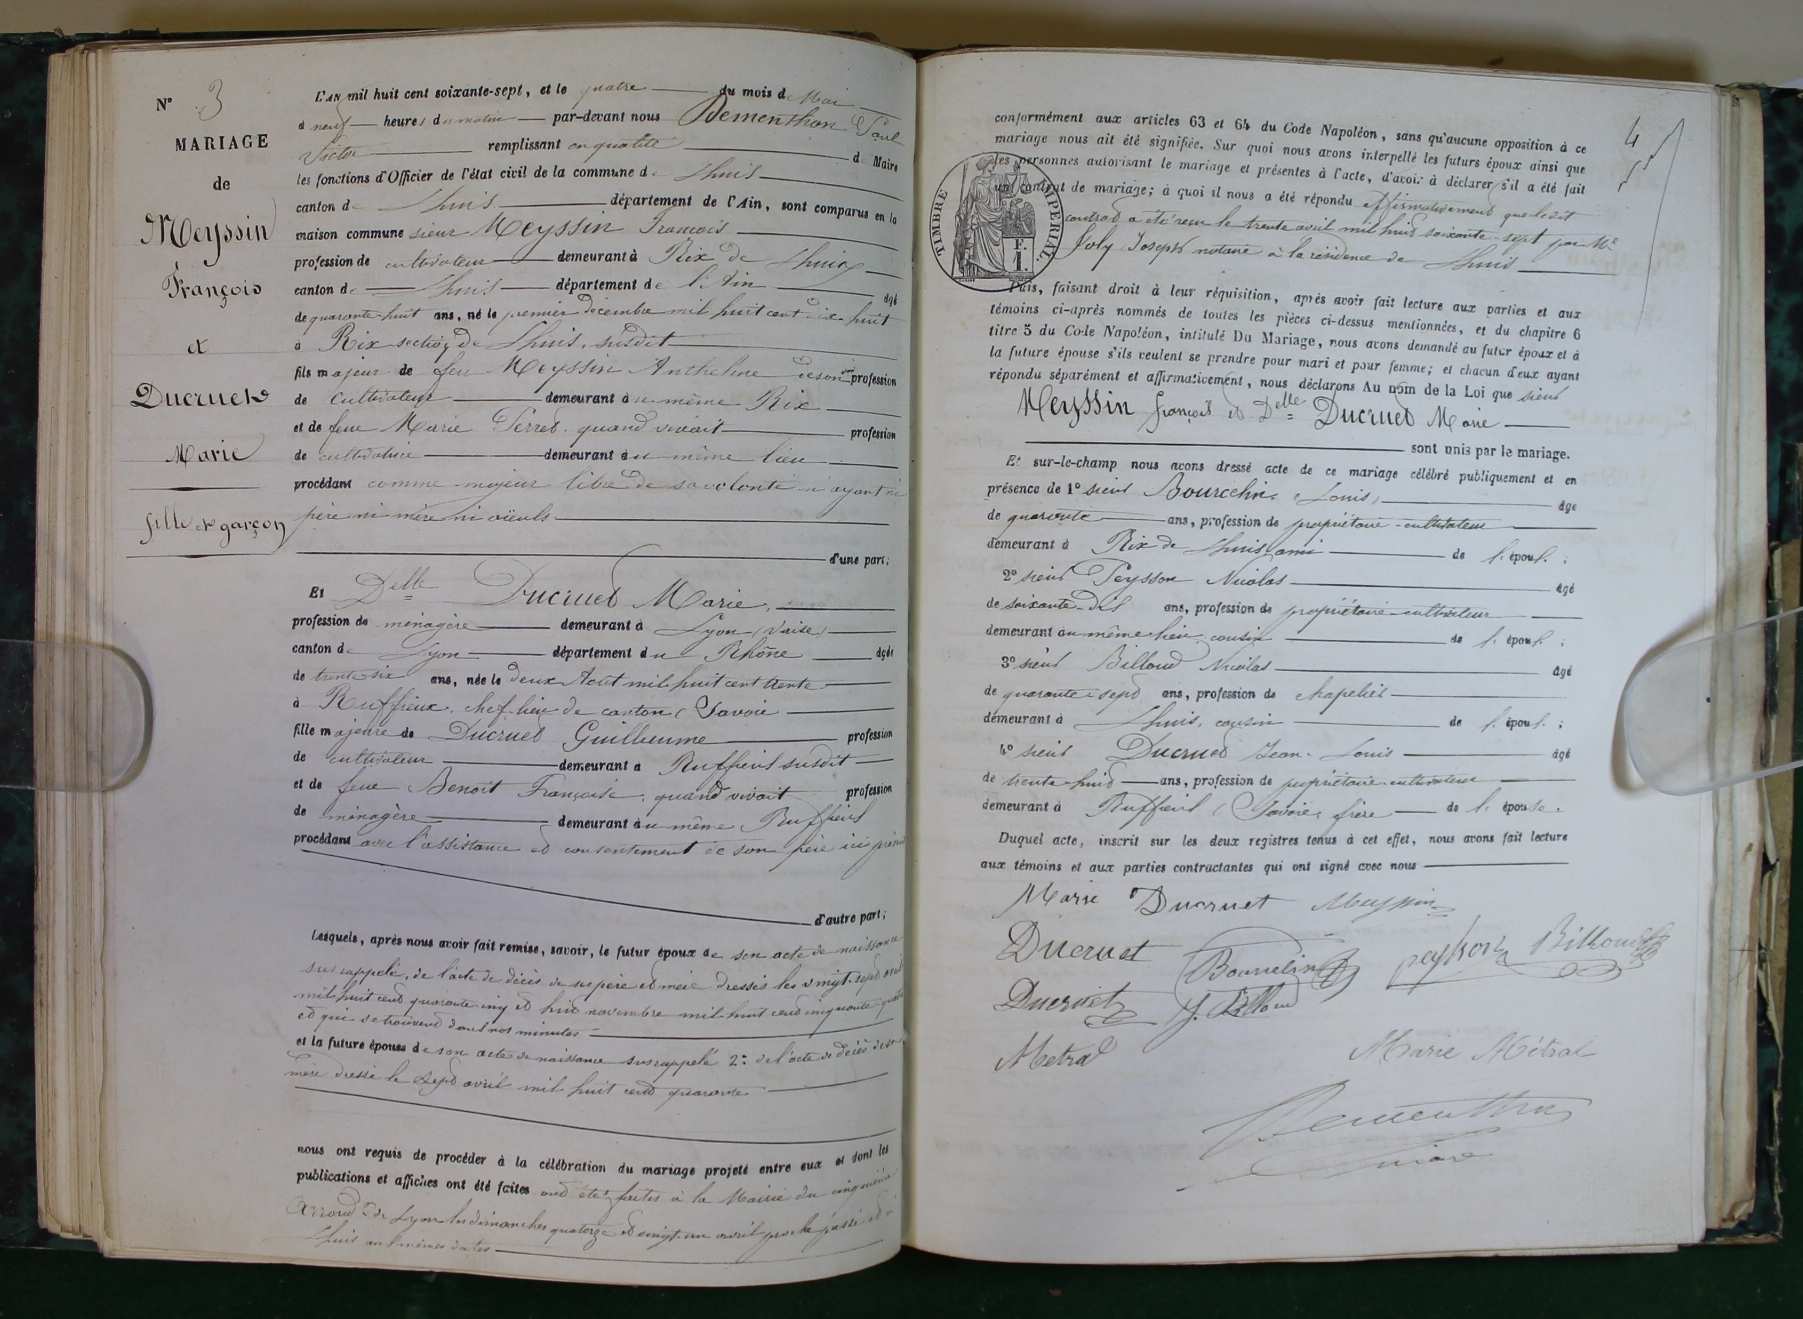 N° 3
MARIAGE
de
Meyssin
François
et
Ducruet
Marie
fille et garçon
L'AN mil huit cent soixante-sept, et le quatre du mois de Mai
à neuf heures du matin par-devant nous Dementhon Paul
Victor remplissant en qualité de Maire
les fonctions d'Officier de l'état civil de la commune de Lhuis
canton de Lhuis département de l'Ain, sont comparus en la
maison commune sieur Meyssin François
profession de cultivateur demeurant à Rix de Lhuis
canton de Lhuis département de l'Ain âgé
de quarante huit ans, né le premier décembre mil huit cent dix huit
à Rix section de Lhuis, susdit
fils majeur de feu Meyssin Anthelme de son vivant profession
de cultivateur demeurant au même Rix
et de feue Marie Perret quand vivait profession
de cultivatrice demeurant au même lieu
procédant comme majeur libre de sa volonté n'ayant ni
père ni mère ni aïeuls
d'une part;
Et Delle Ducruet Marie,
profession de ménagère demeurant à Lyon (Vaise)
canton de Lyon département du Rhône âgée
de trente six ans, née le deux Août mil huit cent trente
à Ruffieux, chef-lieu de canton (Savoie
fille majeure de Ducruet Guillaume profession
de cultivateur demeurant à Ruffieux susdit
et de feue Benoît Françoise, quand vivait profession
de ménagère demeurant au même Ruffieux
procédant avec l'assistance et consentement de son père ici présent
d'autre part;
Lesquels, après nous avoir fait remise, savoir, le futur époux de son acte de naissance
susrappelé, de l'acte de décès de ses père et mère dressés les vingt-sept avril
mil huit cent quarante cinq et huit novembre mil huit cent cinquante quatre
et qui se trouvent dans nos minutes
et la future épouse de son acte de naissance susrappelé 2° de l'acte de décès de sa
mère dressé le sept avril mil huit cent quarante
nous ont requis de procéder à la célébration du mariage projeté entre eux et dont les
publications et affiches ont été faites ont été faites à la Mairie du cinquième
Arrondt de Lyon les dimanches quatorze et vingt-un avril proche passé et à
Lhuis aux mêmes dates
4
conformément aux articles 63 et 64 du Code Napoléon, sans qu'aucune opposition à ce
mariage nous ait été signifiée. Sur quoi nous avons interpellé les futurs époux ainsi que
les personnes autorisant le mariage et présentes à l'acte, d'avoir à déclarer s'il a été fait
un contrat de mariage; à quoi il nous a été répondu affirmativement que ledit
contrat a été reçu le trente avril mil huit soixante-sept par Me
Joly Joseph notaire à la résidence de Lhuis
TIMBRE IMPERIAL.
F.
1.
Puis, faisant droit à leur réquisition, après avoir fait lecture aux parties et aux
témoins ci-après nommés de toutes les pièces ci-dessus mentionnées, et du chapitre 6
titre 5 du Code Napoléon, intitulé Du Mariage, nous avons demandé au futur époux et à
la future épouse s'ils veulent se prendre pour mari et pour femme; et chacun d'eux ayant
répondu séparément et affirmativement, nous déclarons Au nom de la Loi que sieur
Meyssin François et Delle Ducruet Marie
sont unis par le mariage.
Et sur-le-champ nous avons dressé acte de ce mariage célébré publiquement et en
présence de 1° sieur Bourcelin Louis, âgé
de quarante ans, profession de propriétaire-cultivateur
demeurant à Rix de Lhuis ami de l'époux;
2° sieur Peysson Nicolas âgé
de soixante-dix ans, profession de propriétaire-cultivateur
demeurant au même lieu, cousin de l'époux;
3° sieur Billoud Nicolas âgé
de quarante-sept ans, profession de chapelier
demeurant à Lhuis, cousin de l'époux;
4° sieur Ducruet Jean-Louis âgé
de trente-huit ans, profession de propriétaire-cultivateur
demeurant à Ruffieux (Savoie) frère de l'épouse.
Duquel acte, inscrit sur les deux registres tenus à cet effet, nous avons fait lecture
aux témoins et aux parties contractantes qui ont signé avec nous
Marie Ducruet Meyssin
Ducruet Bourcelin peysson Billoud
Ducruet J. Billoud
Metral Marie Métral
Dementhon
maire